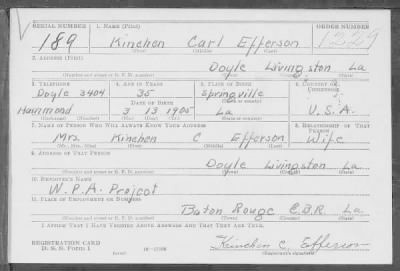 SERIAL NUMBER 1. NAME (Print) ORDER NUMBER
189 Kinchen Carl Efferson 1229
(First) (Middle) (Last)
2. ADDRESS (Print)
Doyle Livingston La
(Number and street or R. F. D. number) (Town) (County) (State)
3. TELEPHONE 4. AGE IN YEARS 5. PLACE OF BIRTH 6. COUNTRY OF CITIZENSHIP
Doyle 3404 35 Springville
DATE OF BIRTH (Town or county)
Hammond 3 13 1905 La U.S.A.
(Exchange) (Number) (Mo.) (Day) (Yr.) (State or country)
7. NAME OF PERSON WHO WILL ALWAYS KNOW YOUR ADDRESS 8. RELATIONSHIP OF THAT PERSON
Mrs. Kinchen C Efferson Wife
(Mr., Mrs., Miss) (First) (Middle) (Last)
9. ADDRESS OF THAT PERSON
Doyle Livingston La
(Number and street or R. F. D. number) (Town) (County) (State)
10. EMPLOYER'S NAME
W.P.A. Projcot
11. PLACE OF EMPLOYMENT OR BUSINESS
Baton Rouge E.B.R. La
(Number and street or R. F. D. number) (Town) (County) (State)
I AFFIRM THAT I HAVE VERIFIED ABOVE ANSWERS AND THAT THEY ARE TRUE.
REGISTRATION CARD
D. S. S. Form 1 Kinchen C. Efferson
(over) (Registrant's signature)